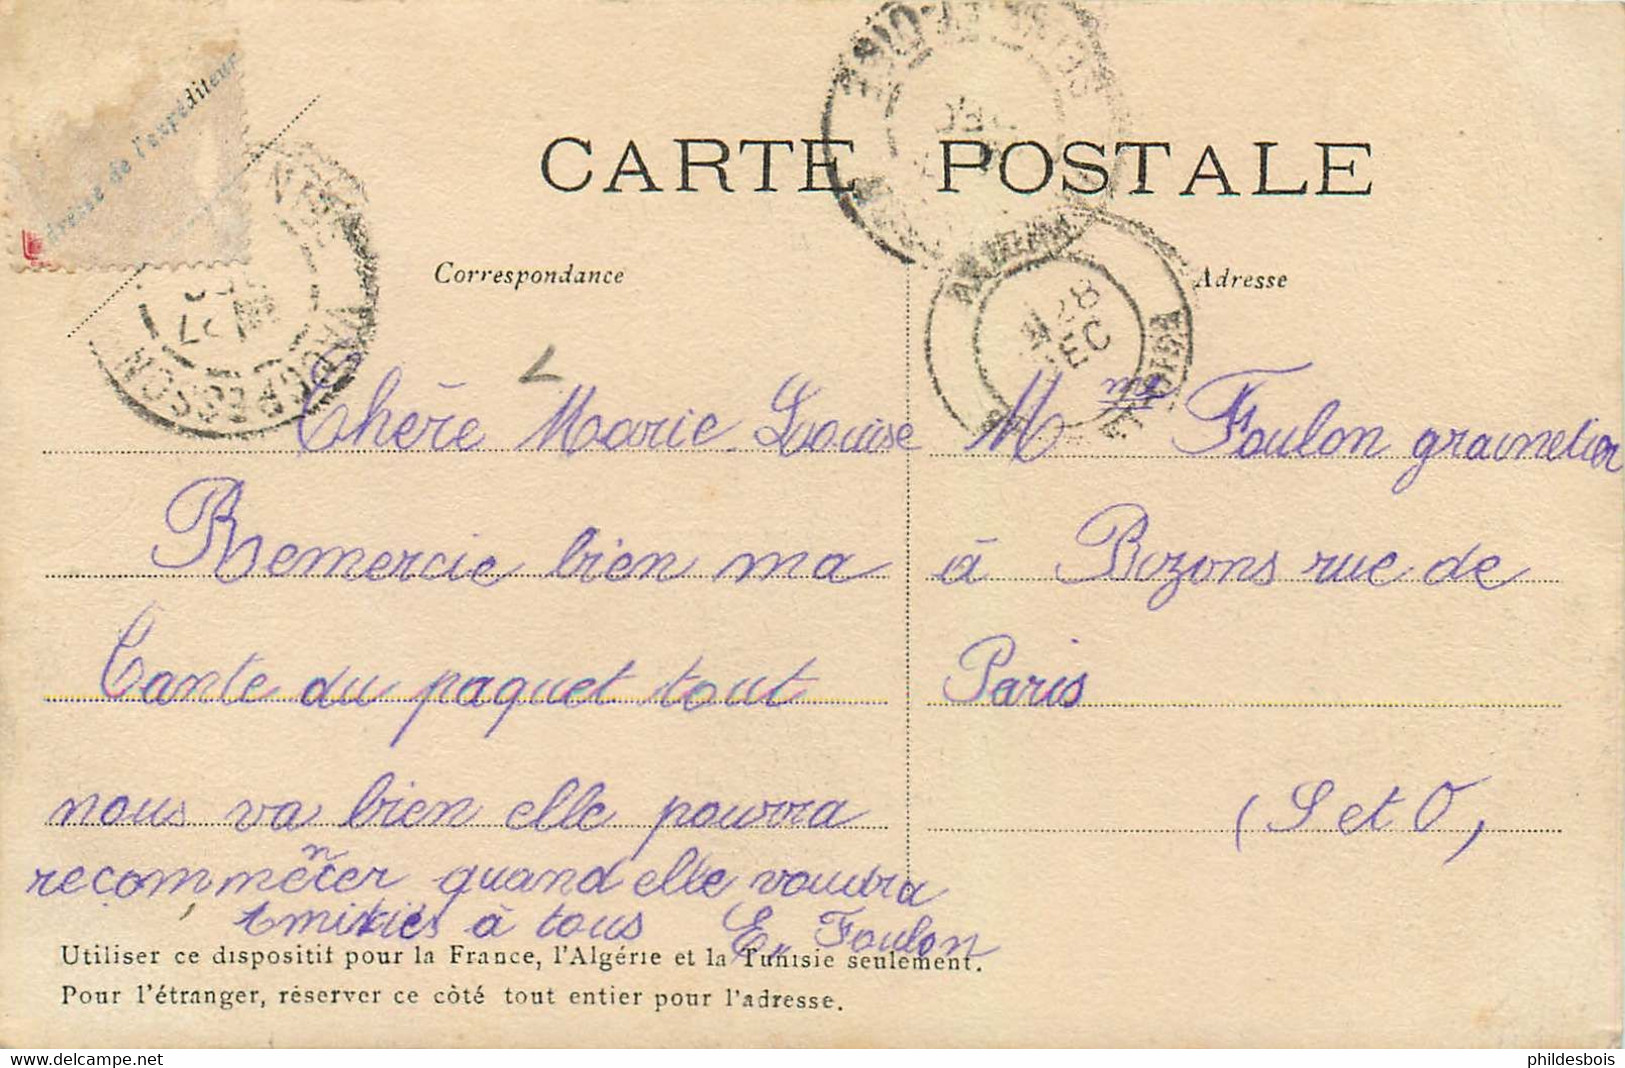 CARTE POSTALE
Correspondance
Adresse
Chère Marie Louise
Remercie bien ma
Tante du paquet tout
nous va bien elle pourra
recommēncer quand elle voudra
Amitiés à tous E,, Foulon
Mme Foulon grainetier
à Bezons rue de
Paris
(S et O,
Utiliser ce dispositif pour la France, l'Algérie et la Tunisie seulement.
Pour l'étranger, réserver ce côté tout entier pour l'adresse.
dresse de l'expéditeur
27
28
DEC
DEC
delcampe.net
phildesbois